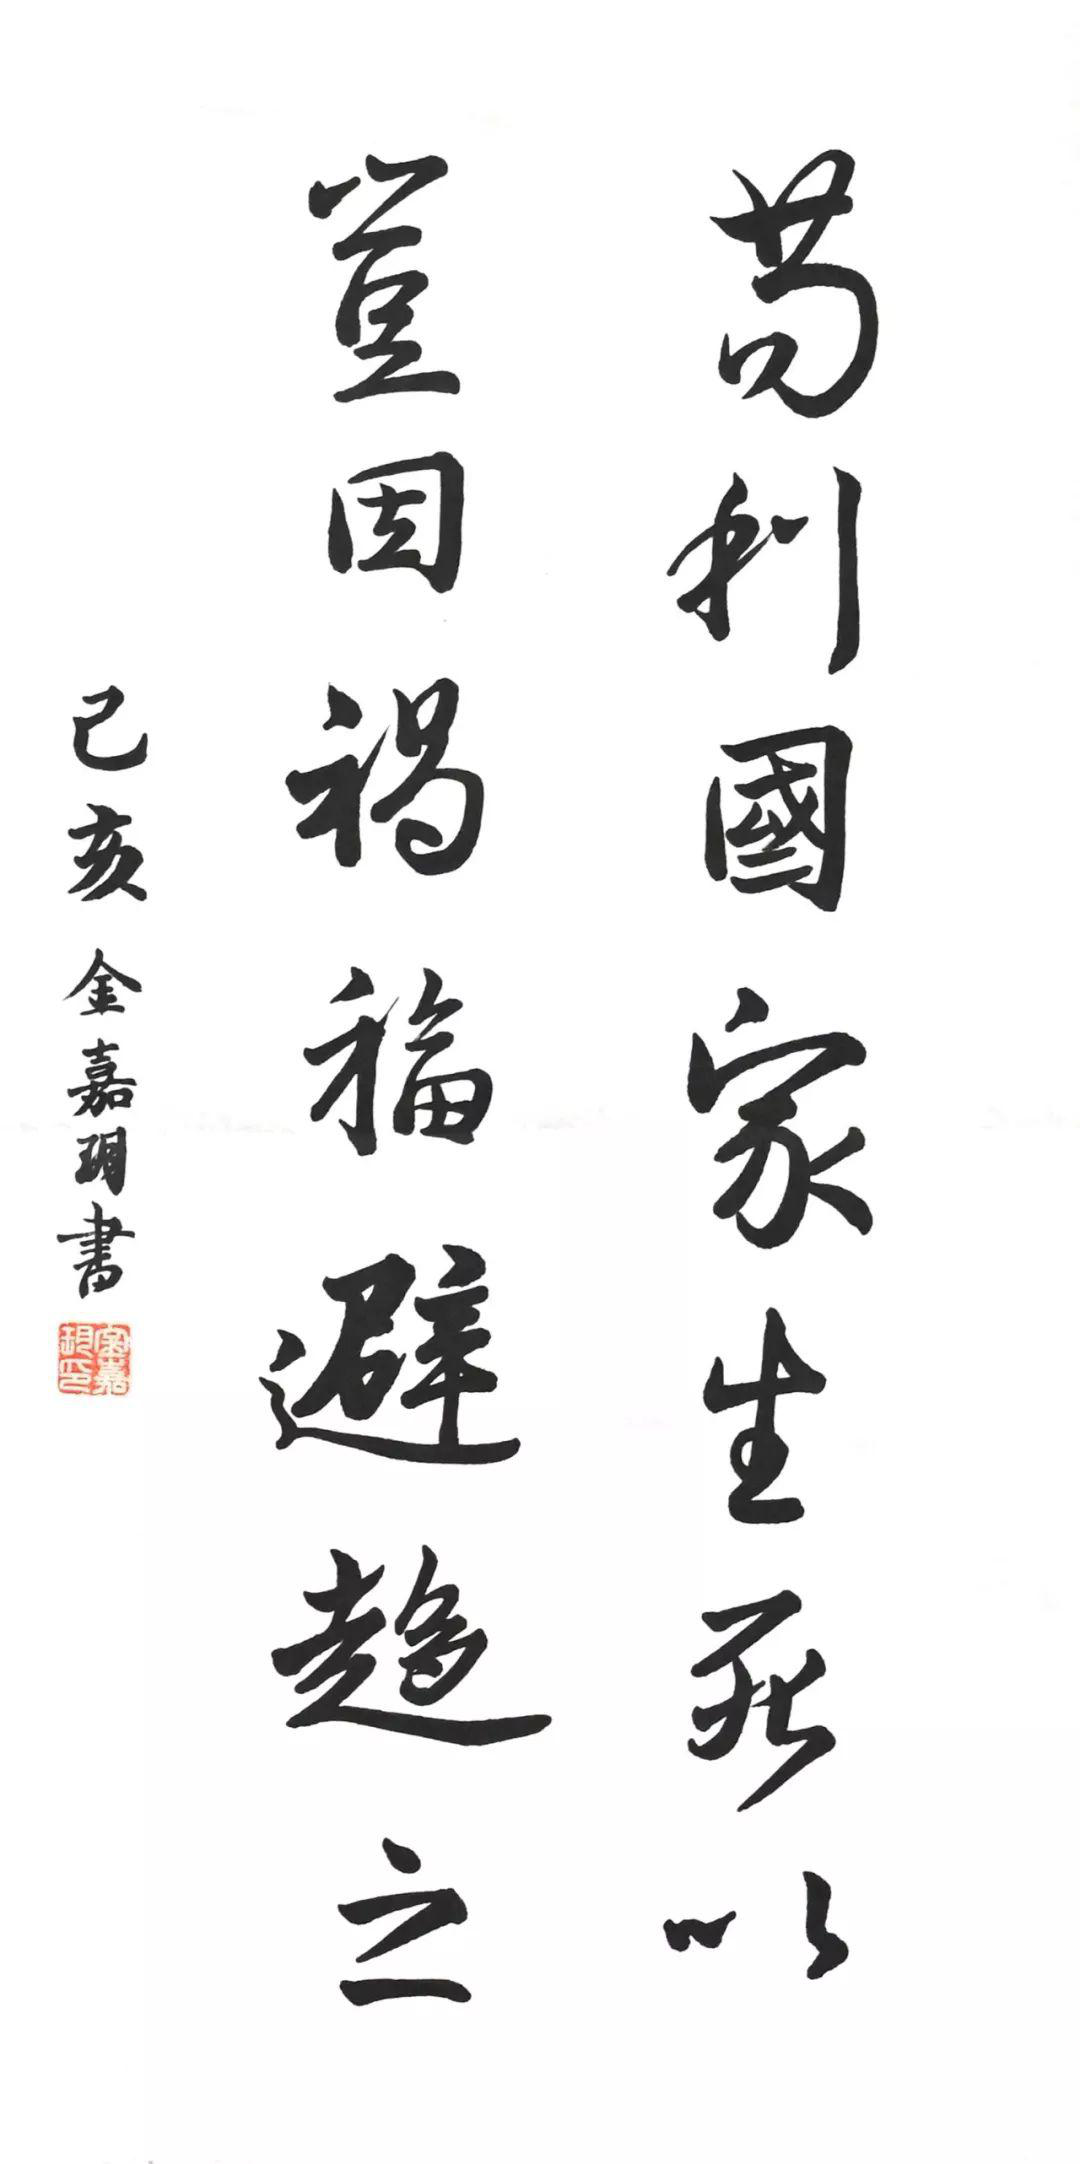 苟利國家生死以
豈因禍福避趨之
己亥金嘉玥書